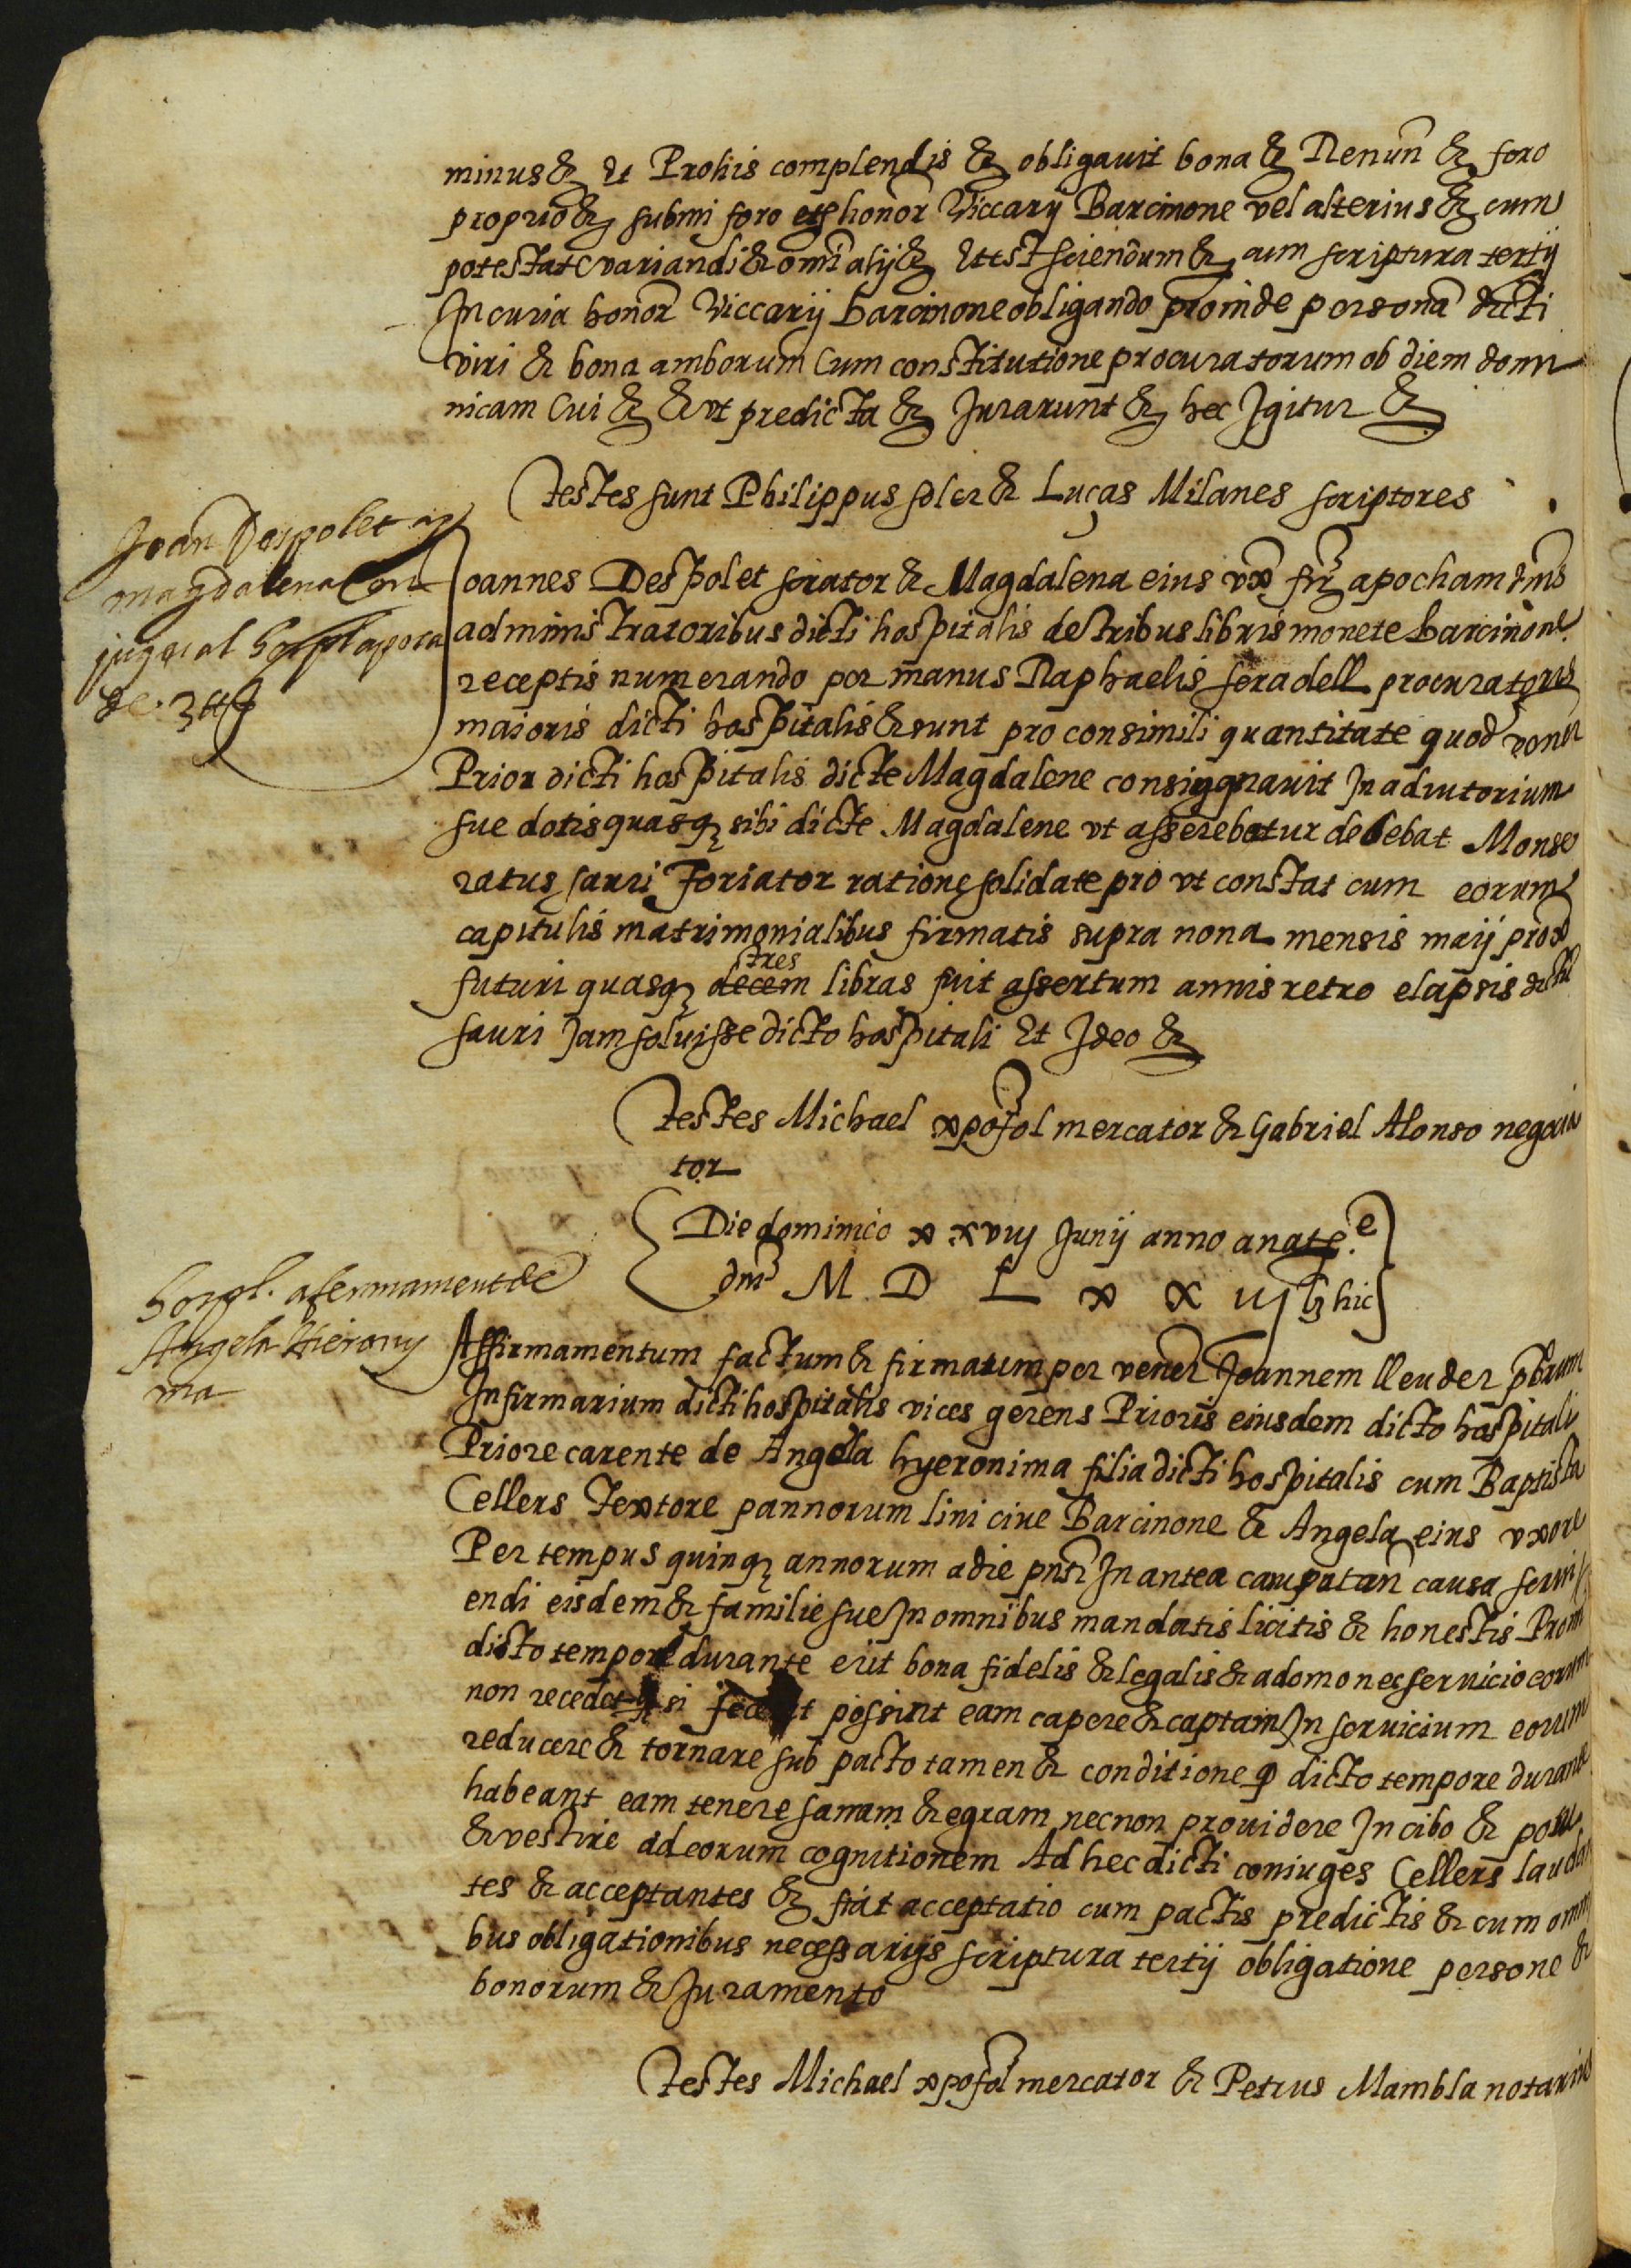 minus & Et Prohis complendis & obligavit bona & Renun & foro
proprio & submi foro honor Viccarij Barcinone vel alterius & cum
potestate variandi & omi alij & Et est sciendum & cum scriptura tertij
In curia honor Viccarij barcinone obligando proinde persona dicti
viri & bona amborum Cum constitutione procuratorum ob diem domi
nicam Cui & & ut predicta & Jurarunt & hec Igitur &
testes sunt Philippus soler & Lucas Milanes scriptores
Joan Despolet
magdalena Con
jugal hospl apoca
de. 3 ℔
Joannes Despolet serator & Magdalena eius vx fir apocham
administratoribus dicti hospitalis de tribus libris monete barcinone
receptis numerando per manus Raphaelis feradell procuratoris
maioris dicti hospitalis & sunt pro consimili quantitate quod vener
Prior dicti hospitalis dicte Magdalene consignavit In adiutorium
sue dotis quasq sibi dicte Magdalene ut asserebatur debebat Monse
ratus sauri Foriator ratione solidate pro ut constat cum eorum
capitulis matrimonialibus firmatis supra nona mensis maij prox
tres
futuri quasq decem libras fuit assertum annis retro elapsis dictu
sauri Jam soluisse dicto hospitali Et Ideo &
testes Michael xpofol mercator & Gabriel Alonso negocia
tor
Die dominico xxviij Junij anno anate.e
dni M D L x x vij hic
hospl. afermament de
Angela Hierony
ma
Affirmamentum factum & firmatum per vener Joannem lleuder pbrum
Infirmarium dicti hospitalis vices gerens Prioris eiusdem dicto hospitali
Priore carente de Angela hyeronima filia dicti hospitalis cum Baptista
Cellers Textore pannorum lini cive Barcinone & Angela eius uxore
Per tempus quinq annorum a die pnti In antea computan causa servi
endi eisdem & familie sue In omnibus mandatis licitis & honestis Prom
dicto tempore durante erit bona fidelis & legalis & a domo nec servicio eorum
non recedet si fecerit possint eam capere & captam In servicium eorum
reducere & tornare sub pacto tamen & conditione q dicto tempore durante
habeant eam tenere sanam & egram necnon providere In cibo & potu
& vestire ad eorum cognitionem Ad hec dicti coniuges Cellers laudan
tes & acceptantes & fiat acceptatio cum pactis predictis & cum omni
bus obligationibus necessarijs scriptura tertij obligatione persone &
bonorum & Juramento
testes Michael xpofol mercator & Petrus Mambla notarius